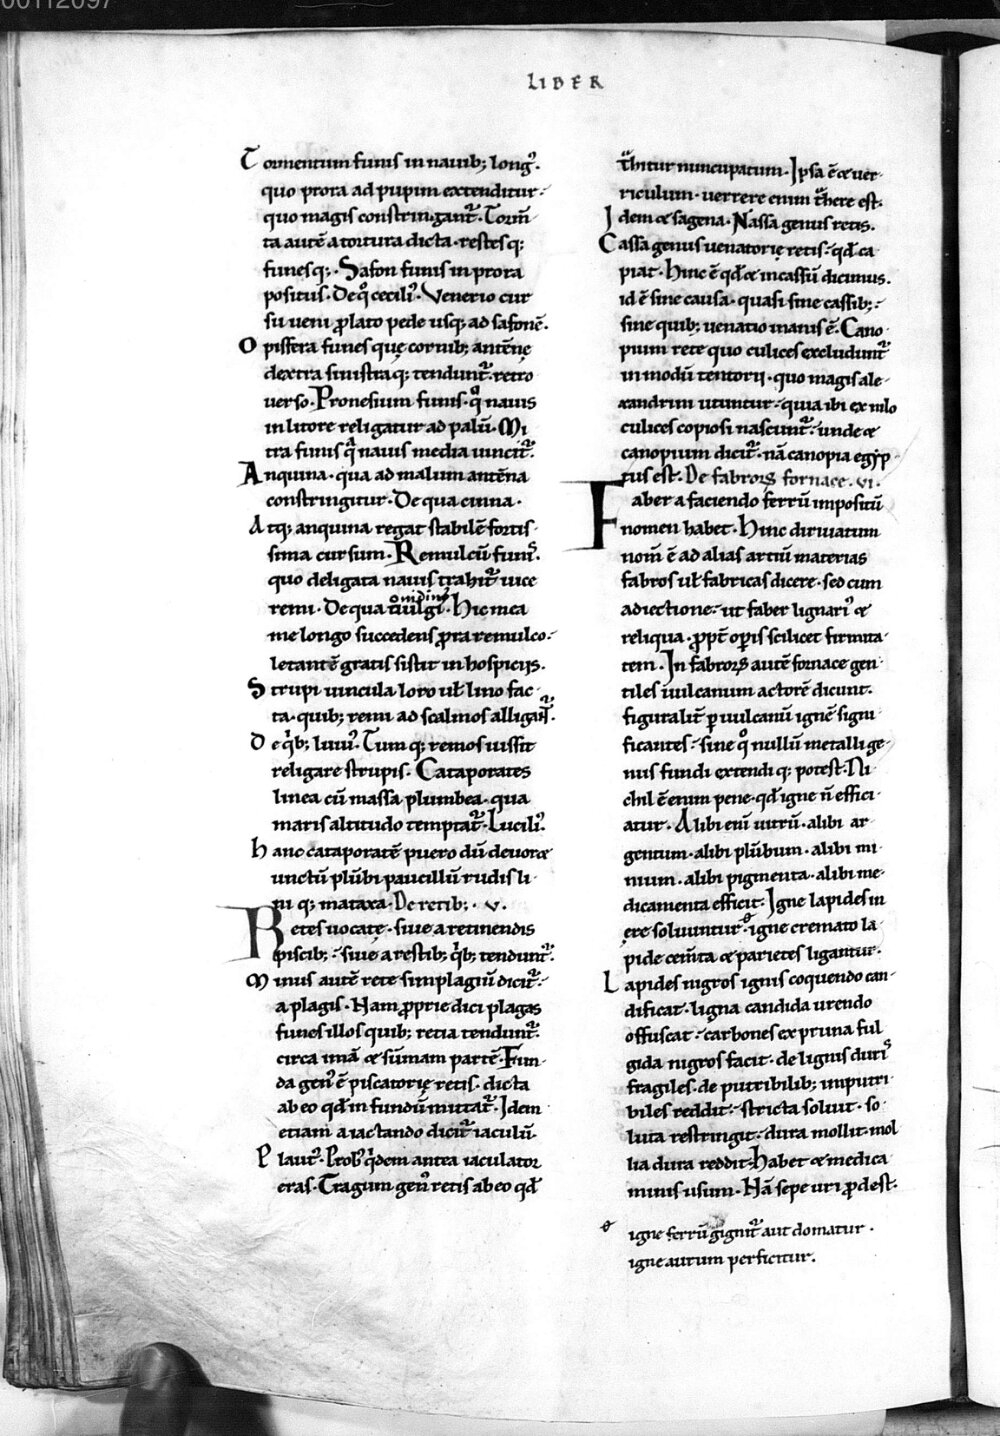 00112097
LIBER
Tormentum funis in nauib; long᾽.
quo prora ad pupim extenditur.
quo magis constringant᾽. Torm̄
ta autē a tortura dicta. restesq;
funesq;. Safon funis in prora
positus. De q̊ cecili᾽. Venerio cur
su ueni prolato pede usq; ad safonē.
Opisfera funes quę cornib; antēne
dextra sinistraq; tendunt᾽. retro
uerso. Pronesium funis. q̊ nauis
in litore religatur ad palū. Mi
tra funis q̊ nauis media uincit᾽.
Anquina. qua ad malum antēna
constringitur. De qua cinna.
Atq; anquina regat stabilē fortis
sima cursum. Remulcū funis᾽.
quo deligata nauis trahit᾽ uice
remi. De qua
. Hic mea
me longo succedens prora remulco.
letantē gratis sistit in hospicijs.
Strupi uincula loro uł lino fac
ta. quib; remi ad scalmos alligant᾽.
De qͥb; liuiꝰ. Tum q; remos iussit
religare strupis. Cataporates
linea cū massa plumbea. qua
maris altitudo temptat᾽. Lucili᾽.
hanc cataporatē puero dū deuoret
unctū plūbi paucillū rudis li
ni q; mataxa. De retib;. v.
Retes uocatę. siue a retinendis
piscib;. siue a restib; qͥb; tendunt᾽.
Minus autē rete simplagiū dicit᾽.
a plagis. Nam proprie dici plagas
funes illos quib; retia tendunt᾽.
circa imā & sūmam partē. Fun
da genꝰ ē piscatorię retis. dicta
ab eo qđ in fundū mittat᾽. Idem
etiam a iactando dicit᾽ iaculū.
Plautꝰ. Probꝰ qͥdem antea iaculator
eras. Tragum genꝰ retis ab eo qđ
t͛hitur nuncupatum. Ipsa ē & uer
riculum. uerrere enim t͛here est.
Idem & sagena. Nassa genus retis.
Cassa genus uenatorię retis. qđ ca
piat. Hinc ē qđ & incassū dicimus.
id ē sine causa. quasi sine cassib;.
sine quib; uenatio inanis ē. Cano
pium rete quo culices excludunt᾽
in modū tentorij. quo magis ale
xandrini utuntur. quia ibi ex nilo
culices copiosi nascunt᾽. unde &
canopium dicit᾽. nā canopia egyp
tus est. De fabroꝝ fornace. vi.
Faber a faciendo ferrū impositū
nomen habet. Hinc diriuatum
nom̄ ē ad alias artiū materias
fabros uł fabricas dicere. sed cum
adiectione. ut faber lignariꝰ &
reliqua. ꝓpt᾽ op̄is scilicet firmita
tem. In fabroꝝ autē fornace gen
tiles uulcanum actorē dicunt.
figuralit᾽ p̱ uulcanū ignē signi
ficantes. sine q̊ nullū metalli ge
nus fundi extendi q; potest. Ni
chil ē enim pene. qđ igne n̄ effici
atur. Alibi enī uitrū. alibi ar
gentum. alibi plūbum. alibi mi
nium. alibi pigmenta. alibi me
dicamenta efficit. Igne lapides in
ęre soluuntur. igne cremato la
pide cem̄ta & parietes ligantur.
Lapides nigros ignis coquendo can
dificat. ligna candida urendo
offuscat. carbones ex pruna ful
gida nigros facit. de lignis duris᾽
fragiles. de putribilib; imputri
biles reddit. stricta soluit. so
luta restringit. dura mollit. mol
lia dura reddit. Habet & medica
minis usum. Nā sepe uri ꝓdest.
igne ferrū gignit᾽ aut domatur.
igne aurum perficitur.